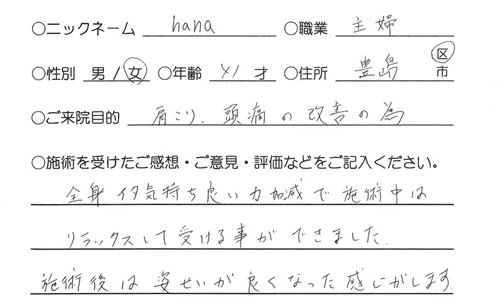 ○ニックネーム hana ○職業 主婦
○性別 男/女 ○年齢 41 才 ○住所 豊島 区市
○ご来院目的 肩こり、頭痛の改善の為
○施術を受けたご感想・ご意見・評価などをご記入ください。
全身 気持ち良い力加減で施術中は
リラックスして受ける事ができました。
施術後は姿せいが良くなった感じがします。